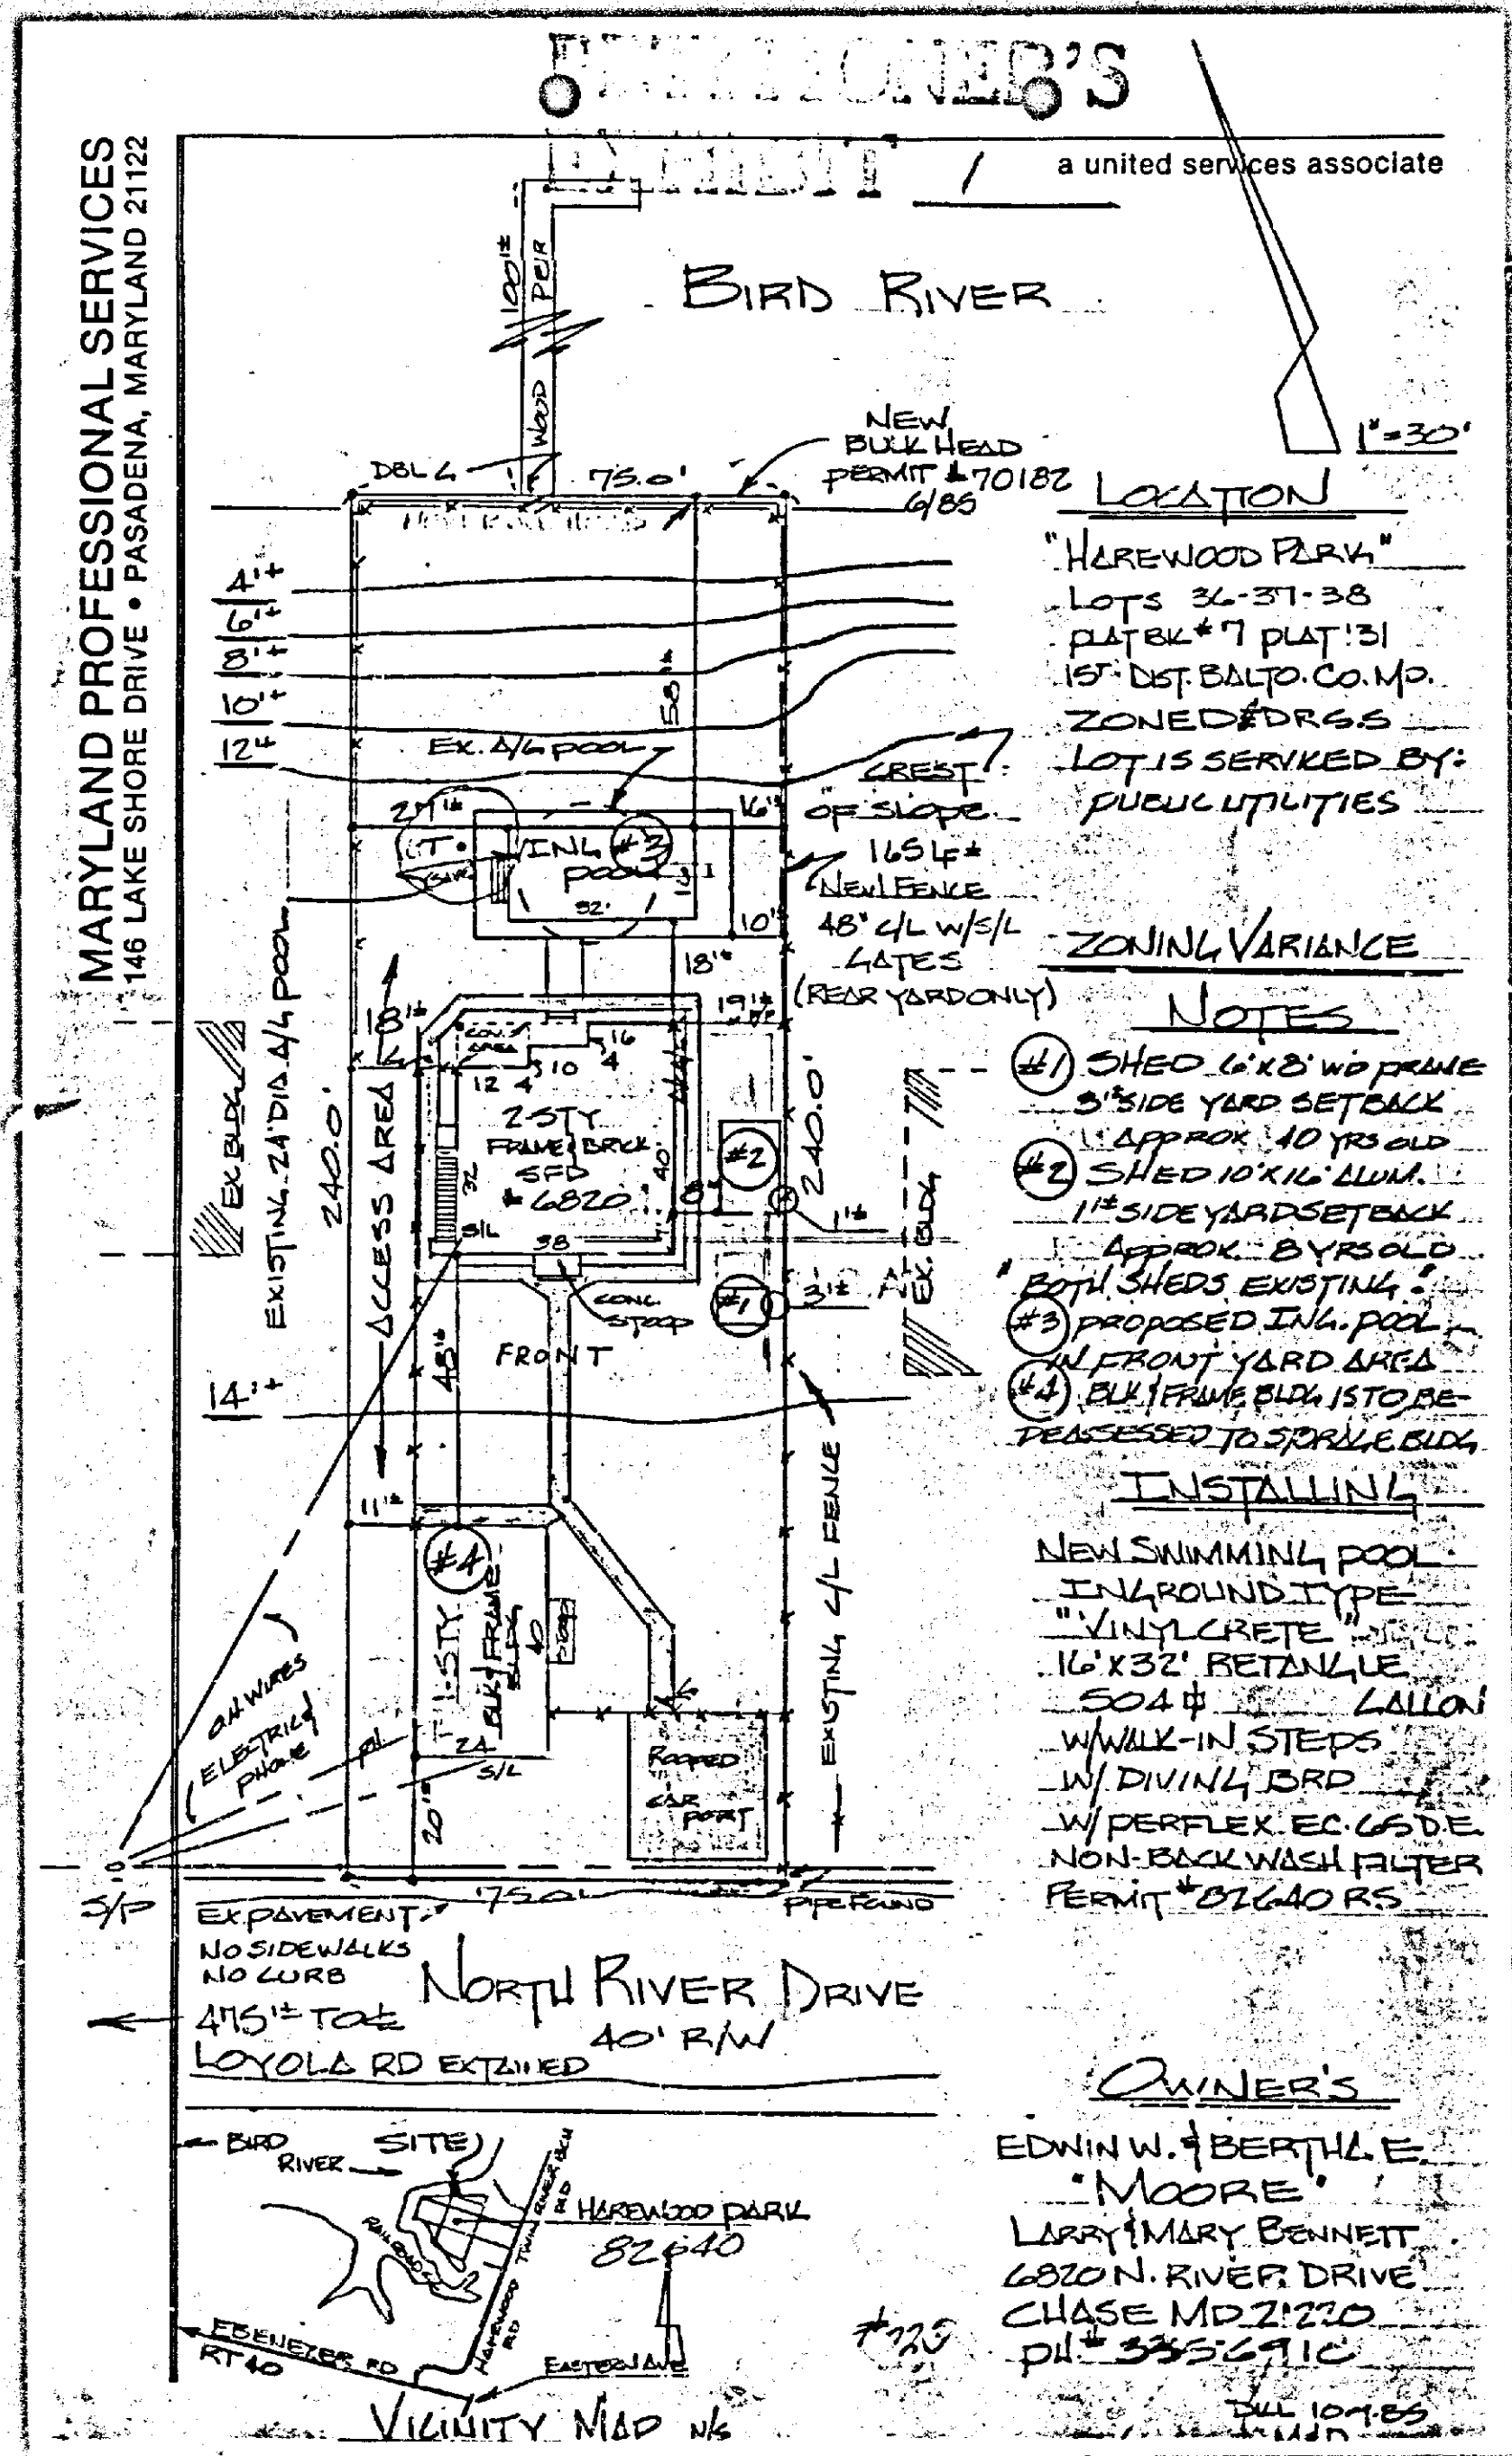 PETITIONER'S
EXHIBIT 1
MARYLAND PROFESSIONAL SERVICES
146 LAKE SHORE DRIVE • PASADENA, MARYLAND 21122
a united services associate
BIRD RIVER
100'±
WOOD PEIR
1"=30'
NEW
BULK HEAD
PERMIT #70182
6/85
DBL G
75.0'
4'+
6'+
8'+
10'+
12'+
58'±
EX. A/G POOL
CREST
OF SLOPE
27'±
16'±
ING #3
POOL
32'
10'±
165 LF±
NEW FENCE
48" C/L W/S/L
GATES
(REAR YARD ONLY)
18'±
19'±
18'±
EXISTING 24' DIA A/G POOL
EX BLDG
240.0'
ACCESS AREA
COV.
AREA
12
4
10
4
16
2-STY
FRAME & BRICK
SFD
#6820
32
40'
38
S/L
8'±
#2
1'±
240.0'
EX. BLDG
#1
3'±
CONC.
STOOP
FRONT
48'±
14'+
11'±
#4
1-STY
BLK & FRAME
BLDG
40
24
S/L
20'±
O.H. WIRES
ELECTRIC &
PHONE
S/P
ROOFED
CAR
PORT
EXISTING C/L FENCE
75.0'
PIPE FOUND
EX PAVEMENT
NO SIDEWALKS
NO CURB
475'± TO ℄
LOYOLA RD EXTAINED
NORTH RIVER DRIVE
40' R/W
LOCATION
"HAREWOOD PARK"
LOTS 36-37-38
PLAT BK #7 PLAT 131
15TH DIST. BALTO. CO. MD.
ZONED DR5.5
LOT IS SERVICED BY:
PUBLIC UTILITIES
ZONING VARIANCE
NOTES
#1 SHED 6'X8' WD FRAME
3'± SIDE YARD SETBACK
APPROX 10 YRS OLD
#2 SHED 10'X16' ALUM.
1'± SIDE YARD SETBACK
APPROX 8 YRS OLD
"BOTH SHEDS EXISTING"
#3 PROPOSED ING. POOL
IN FRONT YARD AREA
#4 BLK & FRAME BLDG IS TO BE
DEASSESSED TO STORAGE BLDG
INSTALLING
NEW SWIMMING POOL
INGROUND TYPE
"VINYLCRETE"
16'X32' RETANGLE
504 ⏍ GALLON
W/WALK-IN STEPS
W/ DIVING BRD
W/ PERFLEX EC. 65 D.E.
NON-BACKWASH FILTER
PERMIT #82640 RS
OWNER'S
EDWIN W. & BERTHA E.
"MOORE"
LARRY & MARY BENNETT
6820 N. RIVER DRIVE
CHASE MD 21220
PH# 335-6910
BIRD
RIVER
SITE
RAILROAD
TWIN RIVER BCH
RD
HAREWOOD PARK
82640
HAREWOOD
RD
EBENEZER RD
RT 40
EASTERN AVE
VICINITY MAP N/S
#725